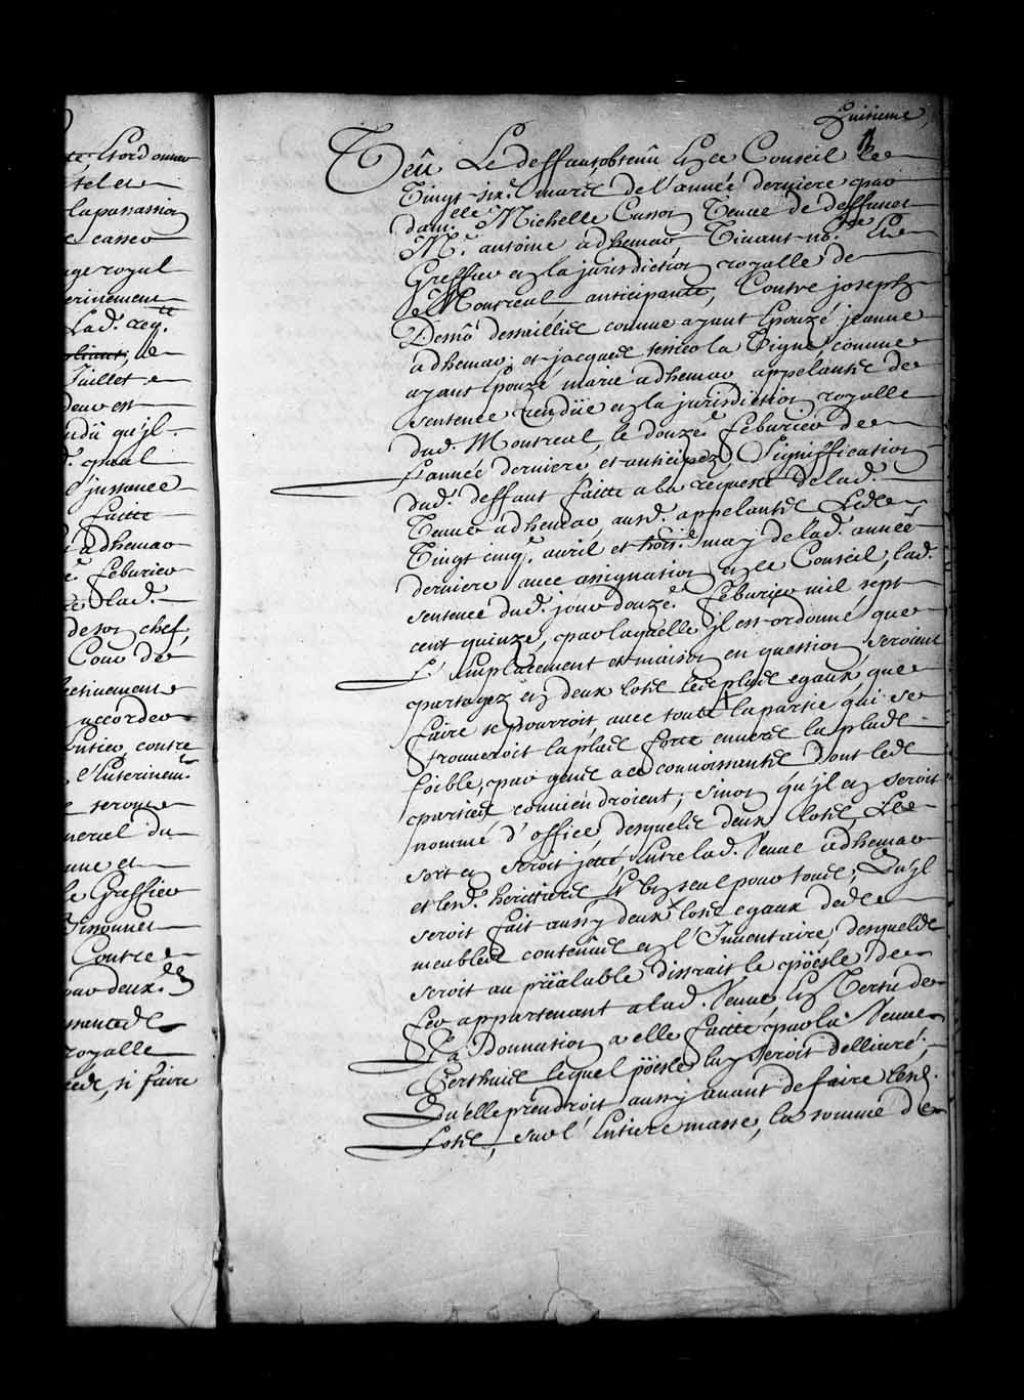 te Lordonna
tel et
la passassion
e casser
age royal
erinement
Lad. req.te
pliant, le
Juillet
deur est
ndü qu'jl
d. qual
l'jnstance
faitte
adhemar
e. feburier
lad.
de son chef,
Cour de
ectivement
accorder
Entier, contre
l'Enterinem.t
serong
neral du
une et
le Greffier
Contre
par deux. de
royalle
cede, si faire
Huitieme
Veû Le deffaut obtenû En ce Conseil le
Vingt-six.e mars de l'année derniere par
dam.elle Michelle Cusson Veuve de deffunct
M.e antoine adhemar Vivant no.re Et
Greffier en la jurisdiction royalle de
Montreal, anticipante, Contre joseph
Demô desruisseaux comme ayant Epouzé jeanne
adhemar; et jacques tessier la Vigne, comme
ayant Epouzé marie adhemar appelants de
sentence rendüe en la jurisdiction royalle
dud. Montreal, le douze.e feburier de
l'année derniere, et anticipez, Signiffication
dud. deffaut faitte a la requeste de lad.
Veuve adhemar, ausd. appelants Les
Vingt cinq.e avril et trois.e may de lad. année
derniere avec assignation en ce Conseil, lad.
sentence dud. jour douze.e feburier mil sept
cent quinze, par laquelle jl est ordonné que
L'emplacement et maison en question seroient
partagez en deux lots les plus egaux que
faire se pourroit, avec toute la partie qui se
trouveroit la plus forte envers la plus
foible, par gens a ce connoissants Dont les
parties conviendroient; sinon qu'jl en seroit
nommé d'office, desquels deux lots, Le
sort en seroit jetté Entre lad. Veuve adhemar
et lesd. heritiers Et luy seul pour tous; Qu'jl
seroit fait aussy deux lots egaux des
meubles contenus en l'Inventaire, desquels
seroit au préalable distrait le poësle de
fer appartenant a lad. Veuve, En Vertu de
La Donnation a elle faitte par la Veuve
Perthuis lequel poësle luy seroit dellivré;
Qu'elle prendroit aussy avant de faire lesd.
Lots, sur l'Entiere masse, la somme de